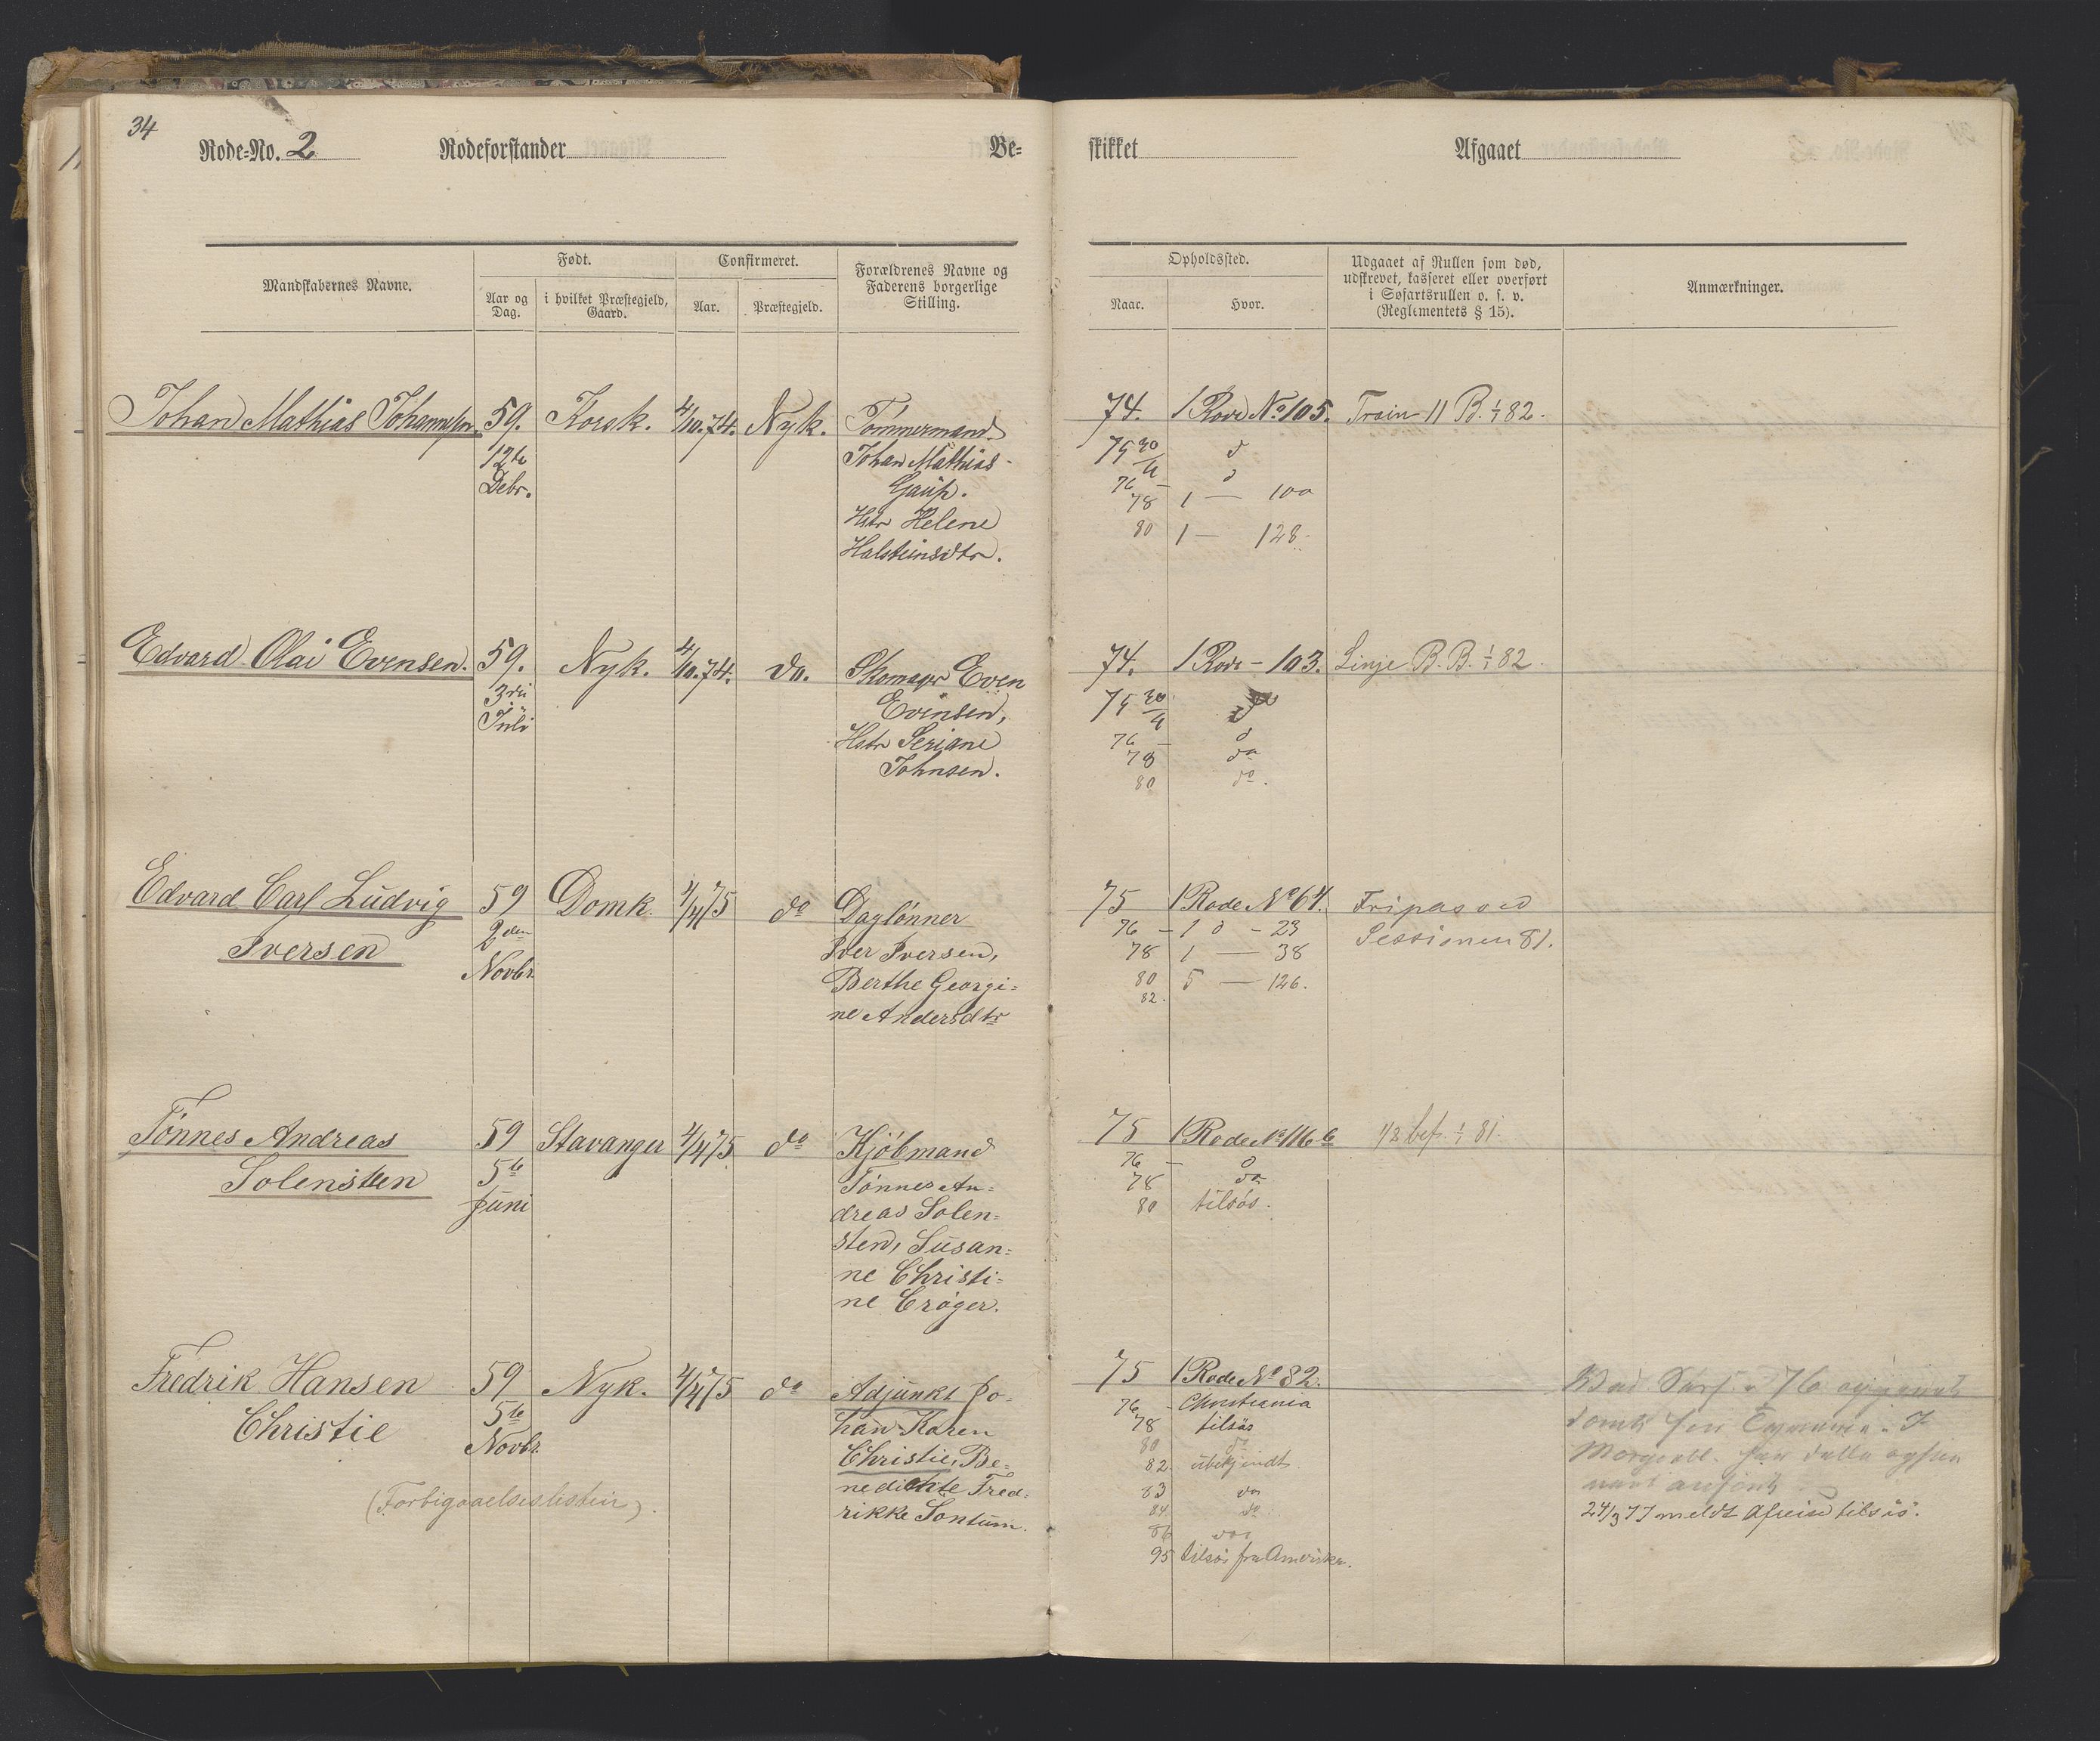 34
Rode-No. 2 Rodeforstander Be- skikket Afgaaet
Mandskabernes Navne. Født. Confirmeret. Forældrenes Navne og Faderens borgerlige Stilling. Opholdssted. Udgaaet af Rullen som død, udskrevet, kasseret eller overført i Søfartsrullen o. s. v. (Reglementets § 15). Anmærkninger.
Aar og Dag. i hvilket Præstegjeld, Gaard. Aar. Præstegjeld. Naar. Hvor.
Johan Mathias Johannesen. 59. Korsk. 4/10.74. Nyk. Tømmermand 74. 1 Rode No 105. Train 11 B. 1/1 82.
12te Johan Mathias 75 30/4 d
Debr. Gaup. 76 - d
78 1 — 100
Hstr Helene
80 1 — 128.
Halsteinsdtr.
Edvard Olai Evensen. 59. Nyk. 4/10.74. do. Skomager Even 74. 1 Rode - 103. Linje B. B. 1/1 82.
3die Evensen, 75 30/4
Juli Hstr Seriane 76 - d
78 do
Johnsen. 80 do.
Edvard Carl Ludvig 59 Domk. 4/4 75 do Daglønner 75 1 Rode No 64. Fripas ved
Iversen 2den Iver Iversen, 76 - 1 d - 23 Sessionen 81.
Novbr 78 1 — 38
Berthe Georgi- 80 5 — 126.
82.
ne Andersdtr
Tønnes Andreas 59 Stavanger 4/4 75 do Kjøbmand 75 1 Rode No 116 b 1/2 bef. 1/1 81.
Solensten 5te Tønnes An- 76 - d
78 do
Juni dreas Solen- 80 tilsøs.
sten, Susan-
ne Christi-
ne Crøger.
Fredrik Hansen 59 Nyk. 4/4 75 do Adjunkt Jo- 75 1 Rode No 82.
Christie 5te han Koren 76 - Christiania
Novbr 78 tilsøs
Christie, Be- 80 do
82. ubekjendt
(Forbigaaelseslisten). nedichte Fred- 83 do
rikke Sontum. 84 do
86 do
24/3 77 meldt afreise tilsøs.
95 tilsøs fra Amerika.